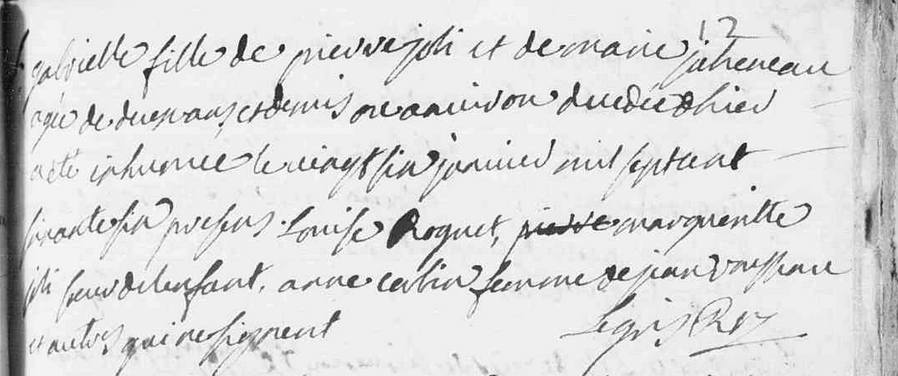 12
gabrielle fille de pierre joli et de marie
agée de deux ans et demis ou anviron decedée d'hier
a eté inhumee le vingt six janvier mil sept cent
soixante six presens Louise Roquet, pierre margueritte
joli soeur de l'enfant, anne catin femme de jean
et autres qui ne signent